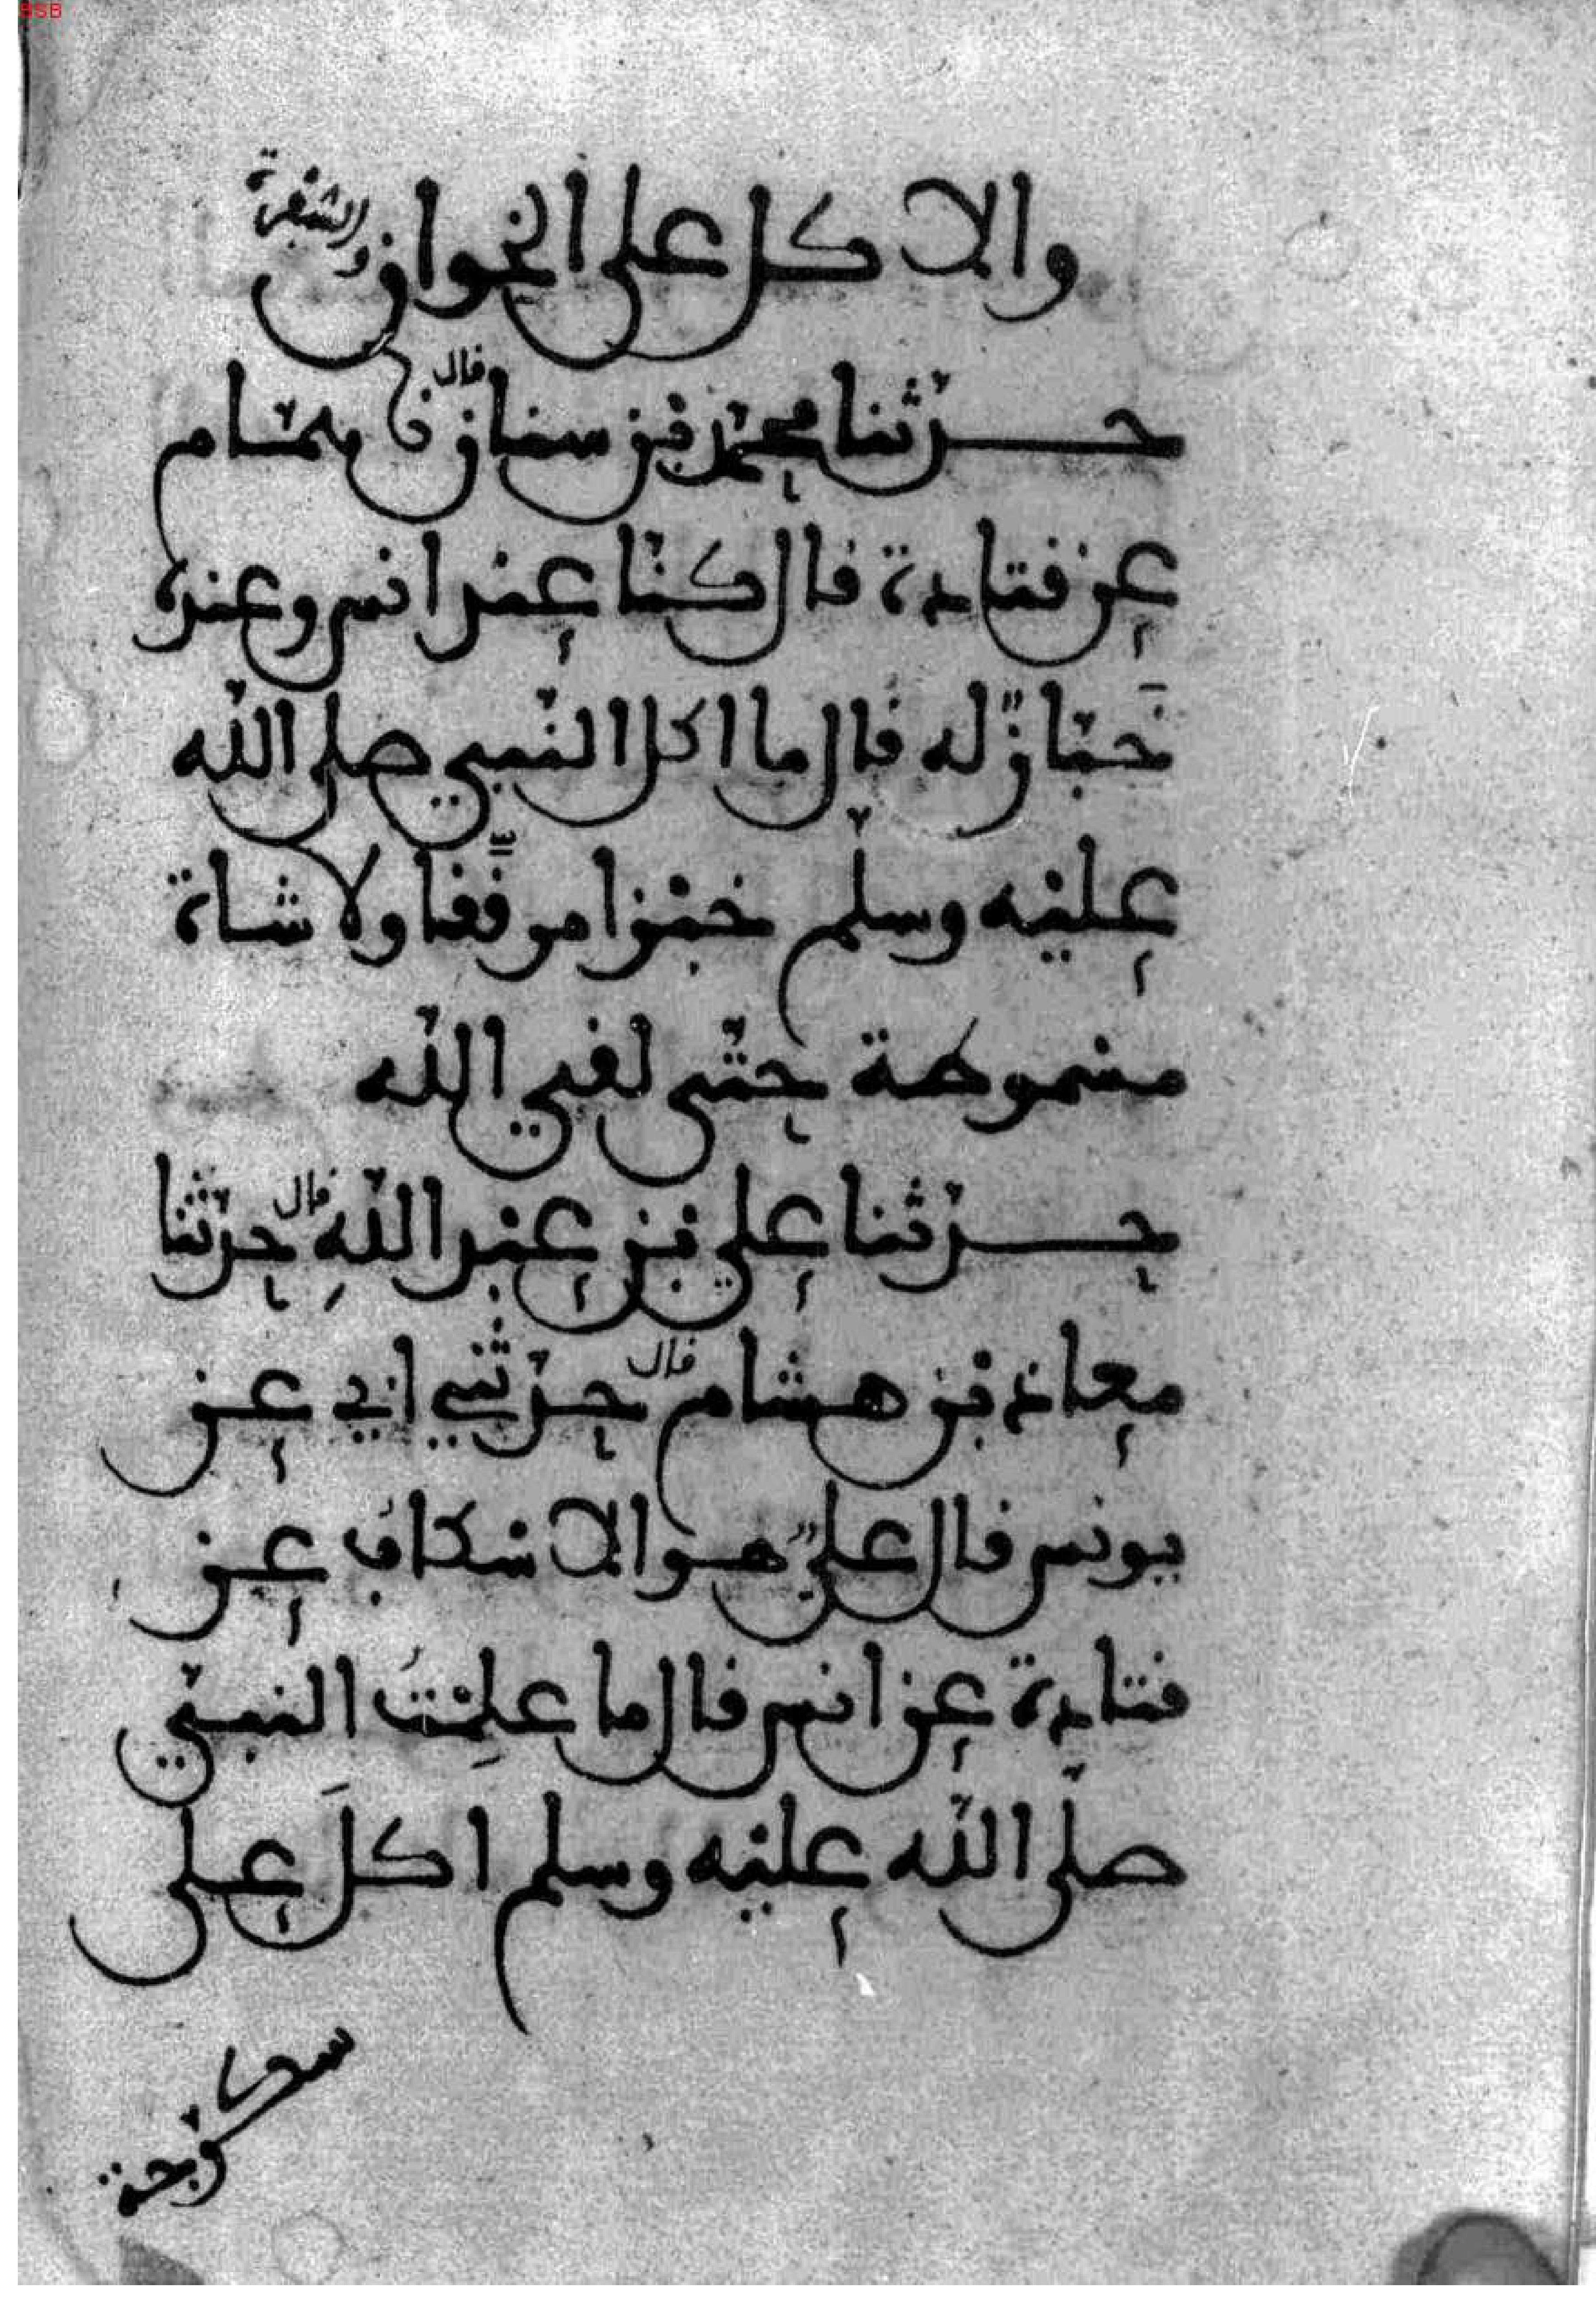 BSB
والاكل على الخوان والسفرة
حدثنا محمد بن سنان قال نا همام
عن قتادة قال كنا عند انس وعنده
خباز له قال ما اكل النبي صلى الله
عليه وسلم خبزا مرققا ولا شاة
مسموطة حتى لقي الله
حدثنا علي بن عبد الله قال حدثنا
معاذ بن هشام قال حدثني ابي عن
يونس قال علي هو الاسكاف عن
قتادة عن انس قال ما علمت النبي
صلى الله عليه وسلم اكل على
سكرجة